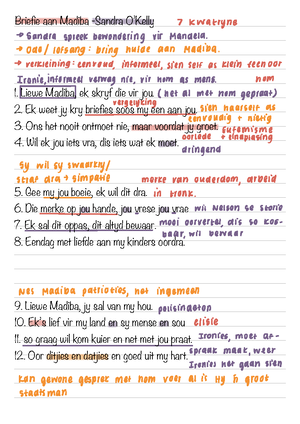 Briefie aan Madiba - Sandra O'Kelly 7 kwatryne
→ Sandra spreek bewondering vir Mandela.
→ Ode/lofsang: bring hulde aan Madiba.
→ verkleining: eenvoud, informeel, sien self as klein teenoor hom
Ironie, informeel verwag nie, vir hom as mens.
1. Liewe Madiba, ek skryf die vir jou. (het al met hom gepraat)
vergelyking
2. Ek weet jy kry briefies soos myne aan jou. sien haarself as eenvoudig + nietig
3. Ons het nooit ontmoet nie, maar voordat jy groet. Eufemisme
4. Wil ek jou iets vra, dis iets wat ek moet.
dringend
Sy wil sy swaarkry/
straf dra + simpatie merke van ouderdom, arbeid
5. Gee my jou boeie, ek wil dit dra. in tronk.
6. Die merke op jou hande, jou vrese jou vrae. wil Nelson se storie
7. Ek sal dit oppas, dit altyd bewaar. mooi oorvertel, dis so kosbaar, wil bewaar
8. Eendag met liefde aan my kinders oordra.
Nes Madiba patrioties, nat ingenomen
9. Liewe Madiba, jy sal van my hou. polisindeton
10. Ek's lief vir my land en sy mense en sou elisie
11. so graag wil kom kuier en net met jou praat. Ironies, moet afspraak maak, weer
12. Oor ditjies en datjies en goed uit my hart. Ironies het gaan sien
Kan gewone gesprek met hom voer al is hy 'n groot
staatsman